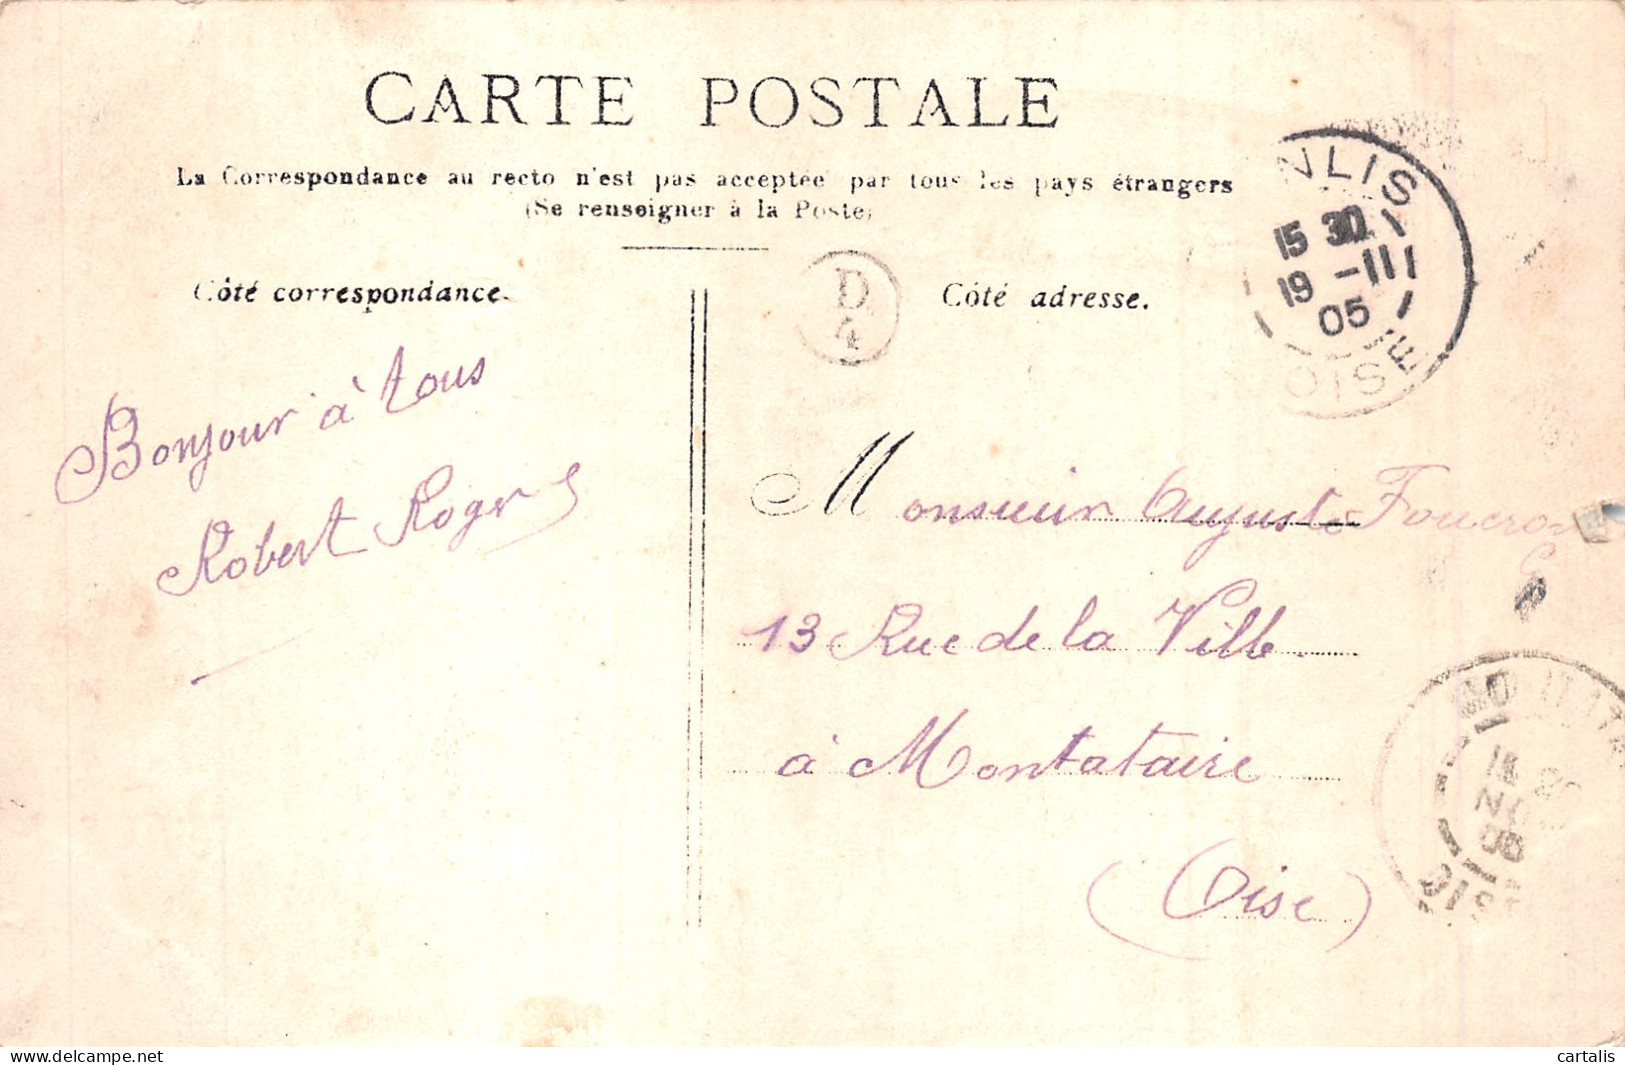 CARTE POSTALE
La Correspondance au recto n'est pas acceptée par tous les pays étrangers
(Se renseigner à la Poste)
Côté correspondance.
D
4
Côté adresse.
NLIS
15 30
19 -11
05
OISE
Bonjour à tous
Robert Roger
Monsieur Auguste
13 Rue de la Ville
à Montataire
(Oise)
cartalis